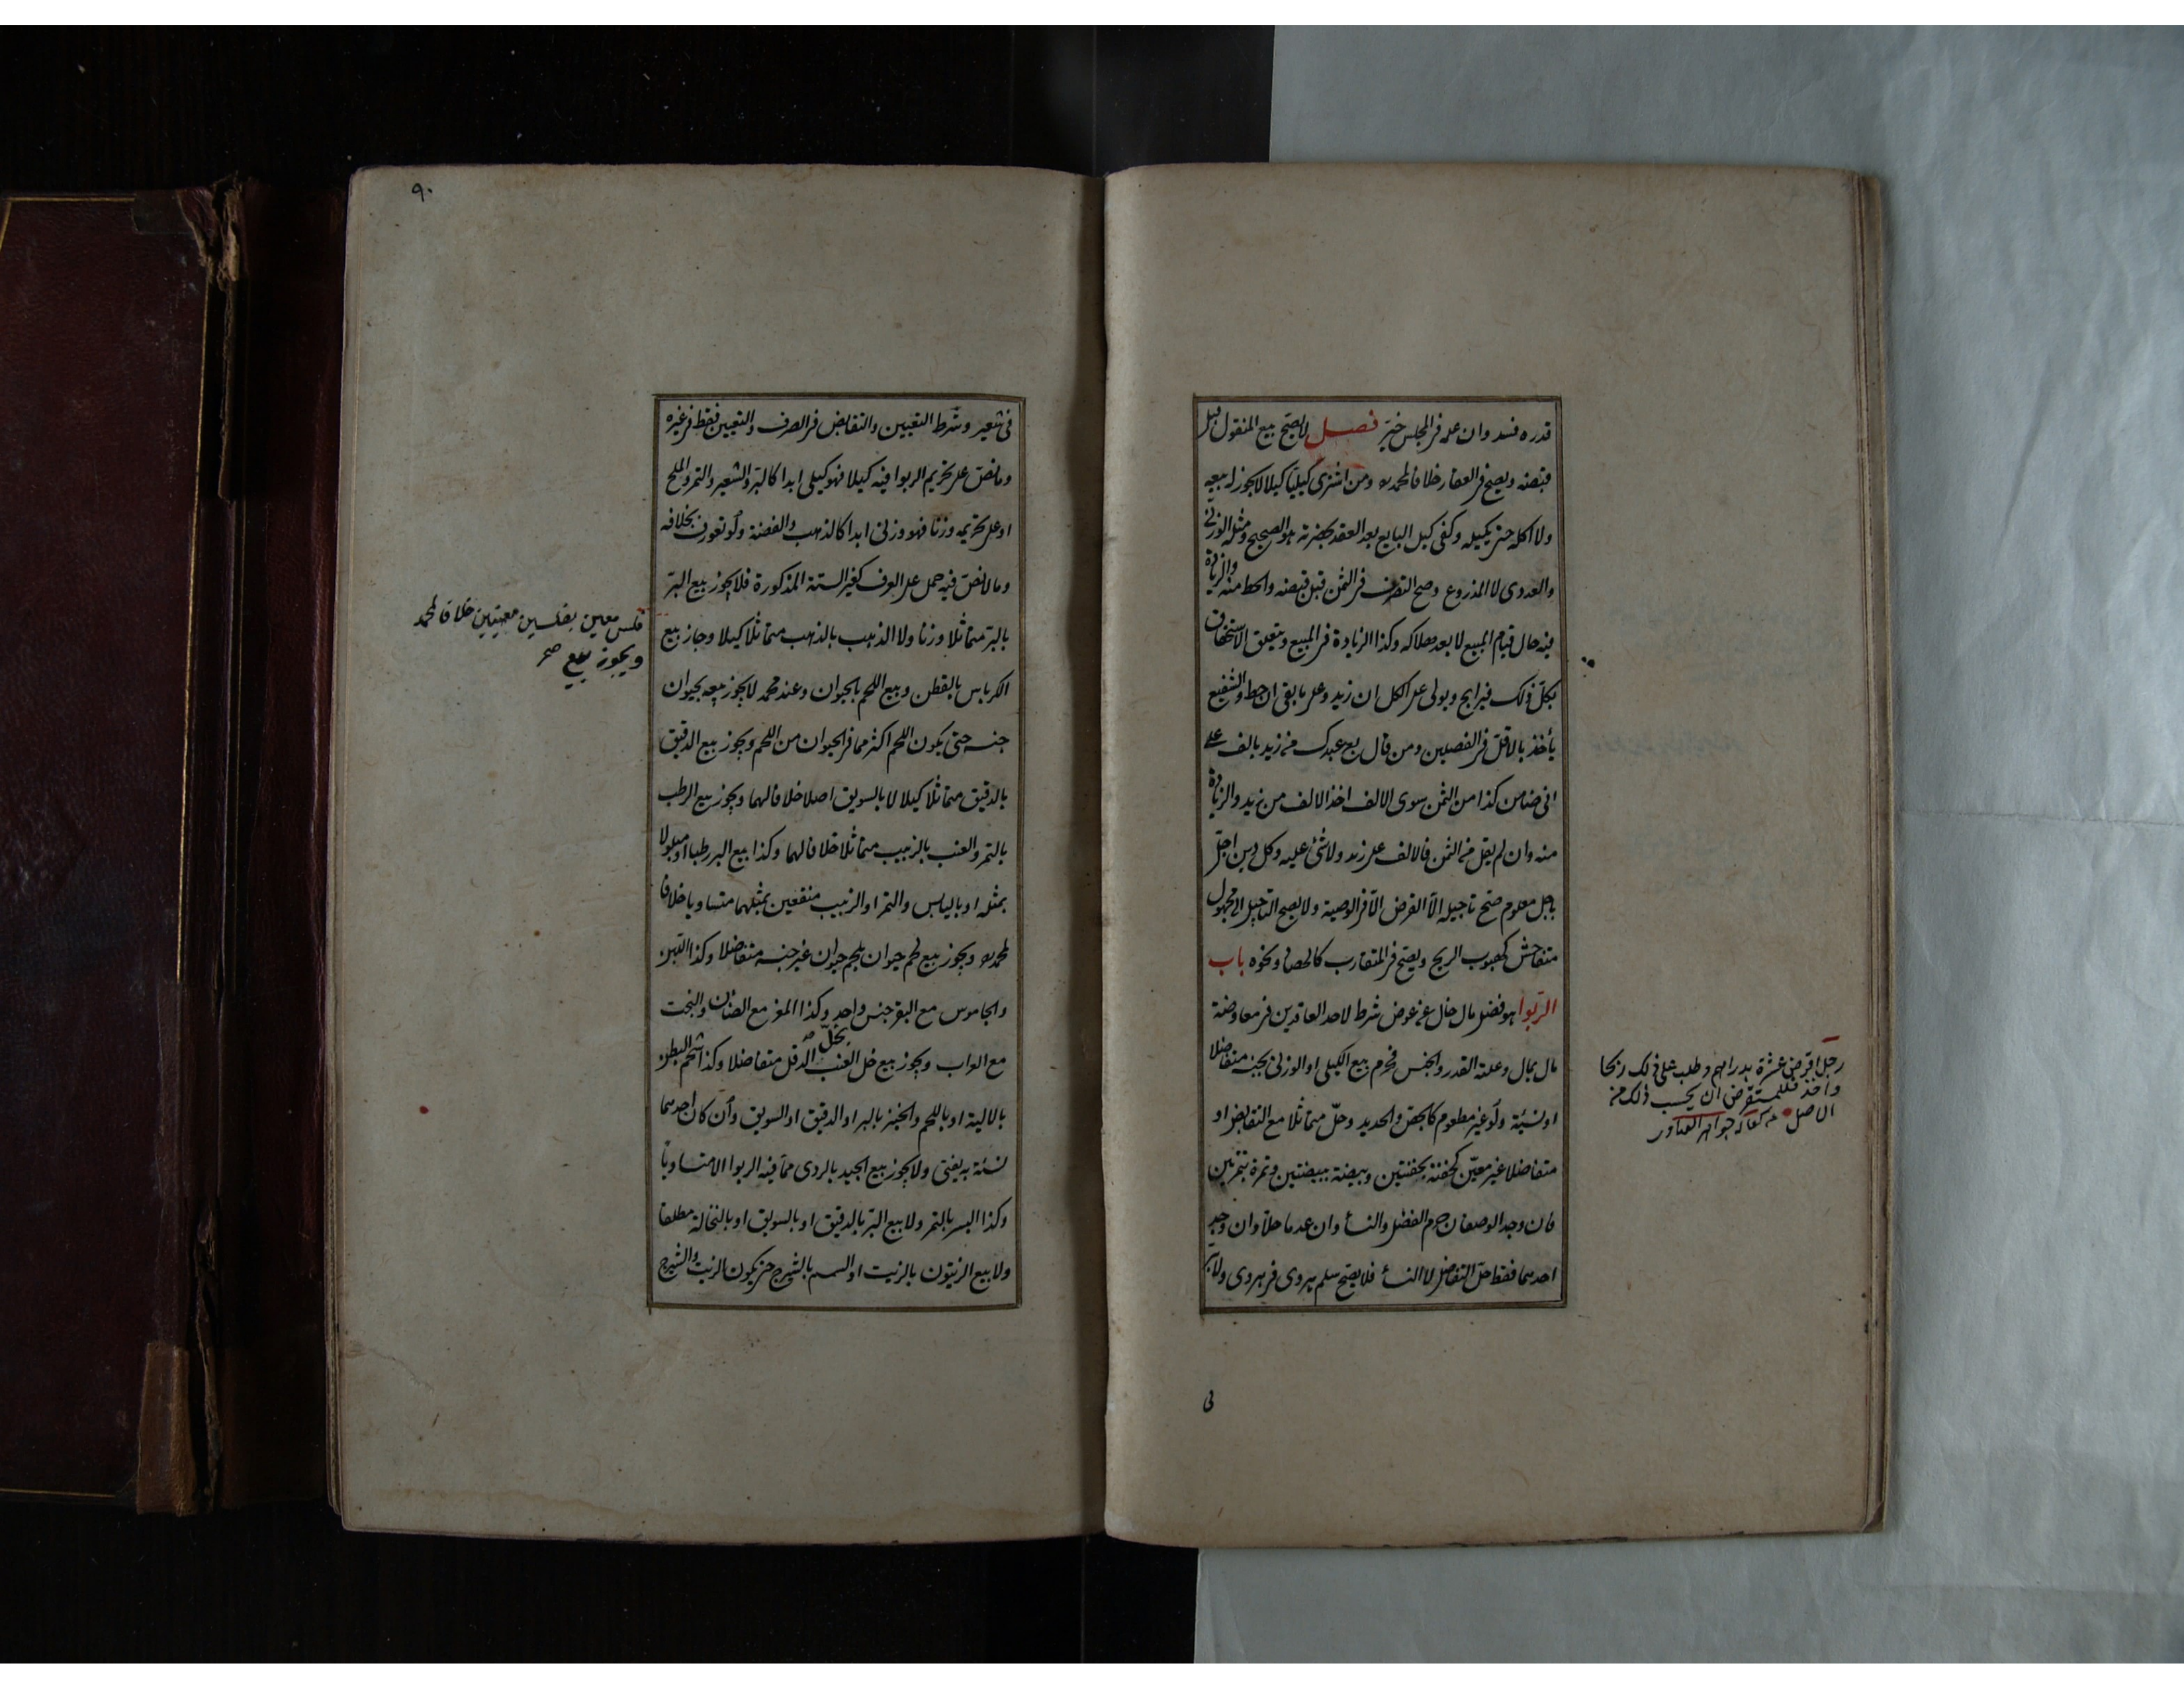 قدره فسد وان علم فى المجلس خيّر فصل لا يصح بيع المنقول قبل
قبضه ويصح فى العقار خلافا لمحمد ومن اشترى كيليّا كيلا لا يجوز له بيعه
ولا اكله حتى يكيله وكفى كيل البايع بعد العقد بحضرته هو الصحيح ومثله الوزنى
والعددى لا المذروع وصح التصرف فى الثمن قبل قبضه والحط منه والزيادة
فيه حال قيام المبيع لا بعد هلاكه وكذا الزيادة فى المبيع ويتعلق الاستحقاق
بكل ذلك فيرابح ويولى على الكل ان زيد وعلى ما بقى ان حط والشفيع
يأخذ بالاقل فى الفصلين ومن قال بع عبدك من زيد بالف على
انى ضامن كذا من الثمن سوى الالف اخذ الالف من زيد والزيادة
منه وان لم يقل من الثمن فالالف على زيد ولا شئ عليه وكل دين اجل
باجل معلوم صح تاجيله الا القرض الا فى الوصية ولا يصح التاجيل الى مجهول
متفاحش كهبوب الريح ويصح فى المتقارب كالحصاد ونحوه باب
الربوا هو فضل مال خال عن عوض شرط لاحد العاقدين فى معاوضة
مال بمال وعلته القدر والجنس فحرم بيع الكيلى او الوزنى بجنسه متفاضلا
او نسيئة ولو غير مطعوم كالجص والحديد وحلّ متماثلا مع التقابض او
متفاضلا غير معيّن كحفنة بحفنتين وبيضة ببيضتين وتمرة بتمرتين
فان وجد الوصفان حرم الفضل والنسأ وان عدما حلا وان وجد
احدهما فقط حلّ التفاضل لا النسأ فلا يصح سلم هروى فى هروى ولا بر
رجل اقرض عشرة بدراهم وطلب على ذلك ربحا
واخذ فللمستقرض ان يحسب ذلك من
الاصل جواهر الفتاوى
فى
٩٠
فى شعير وشرط التعيين والتقابض فى الصرف والتعيين فقط فى غيره
وما نص على تحريم الربوا فيه كيلا فهو كيلى ابدا كالبر والشعير والتمر والملح
او على تحريمه وزنا فهو وزنى ابدا كالذهب والفضة ولو تعورف بخلافه
وما لا نصّ فيه حمل على العرف كغير الستة المذكورة فلا يجوز بيع البرّ
بالبرّ متماثلا وزنا ولا الذهب بالذهب متماثلا كيلا وجاز بيع
فلس معين بفلسين معينين خلافا لمحمد
ويجوز بيع صح
الكرباس بالقطن وبيع اللحم بالحيوان وعند محمد لا يجوز بيعه بحيوان
جنسه حتى يكون اللحم اكثر مما فى الحيوان من اللحم ويجوز بيع الدقيق
بالدقيق متماثلا كيلا لا بالسويق اصلا خلافا لهما ويجوز بيع الرطب
بالتمر والعنب بالزبيب متماثلا خلافا لهما وكذا بيع البر رطبا او مبلولا
بمثله او باليابس والتمر او الزبيب منقعين بمثلهما متساويا خلافا
لمحمد ويجوز بيع لحم حيوان بلحم حيوان غير جنسه متفاضلا وكذا اللبن
والجاموس مع البقر جنس واحد وكذا المعز مع الضأن والبخت
مع العراب ويجوز بيع خل العنب بخلّ الدقل متفاضلا وكذا شحم البطن
بالالية او باللحم والخبز بالبر او الدقيق او السويق وان كان احدهما
نسئة به يفتى ولا يجوز بيع الجيد بالردى مما فيه الربوا الا متساويا
وكذا البسر بالتمر ولا بيع البرّ بالدقيق او بالسويق او بالنخالة مطلقا
ولا بيع الزيتون بالزيت او السمسم بالشيرج حتى يكون الزيت والشيرج